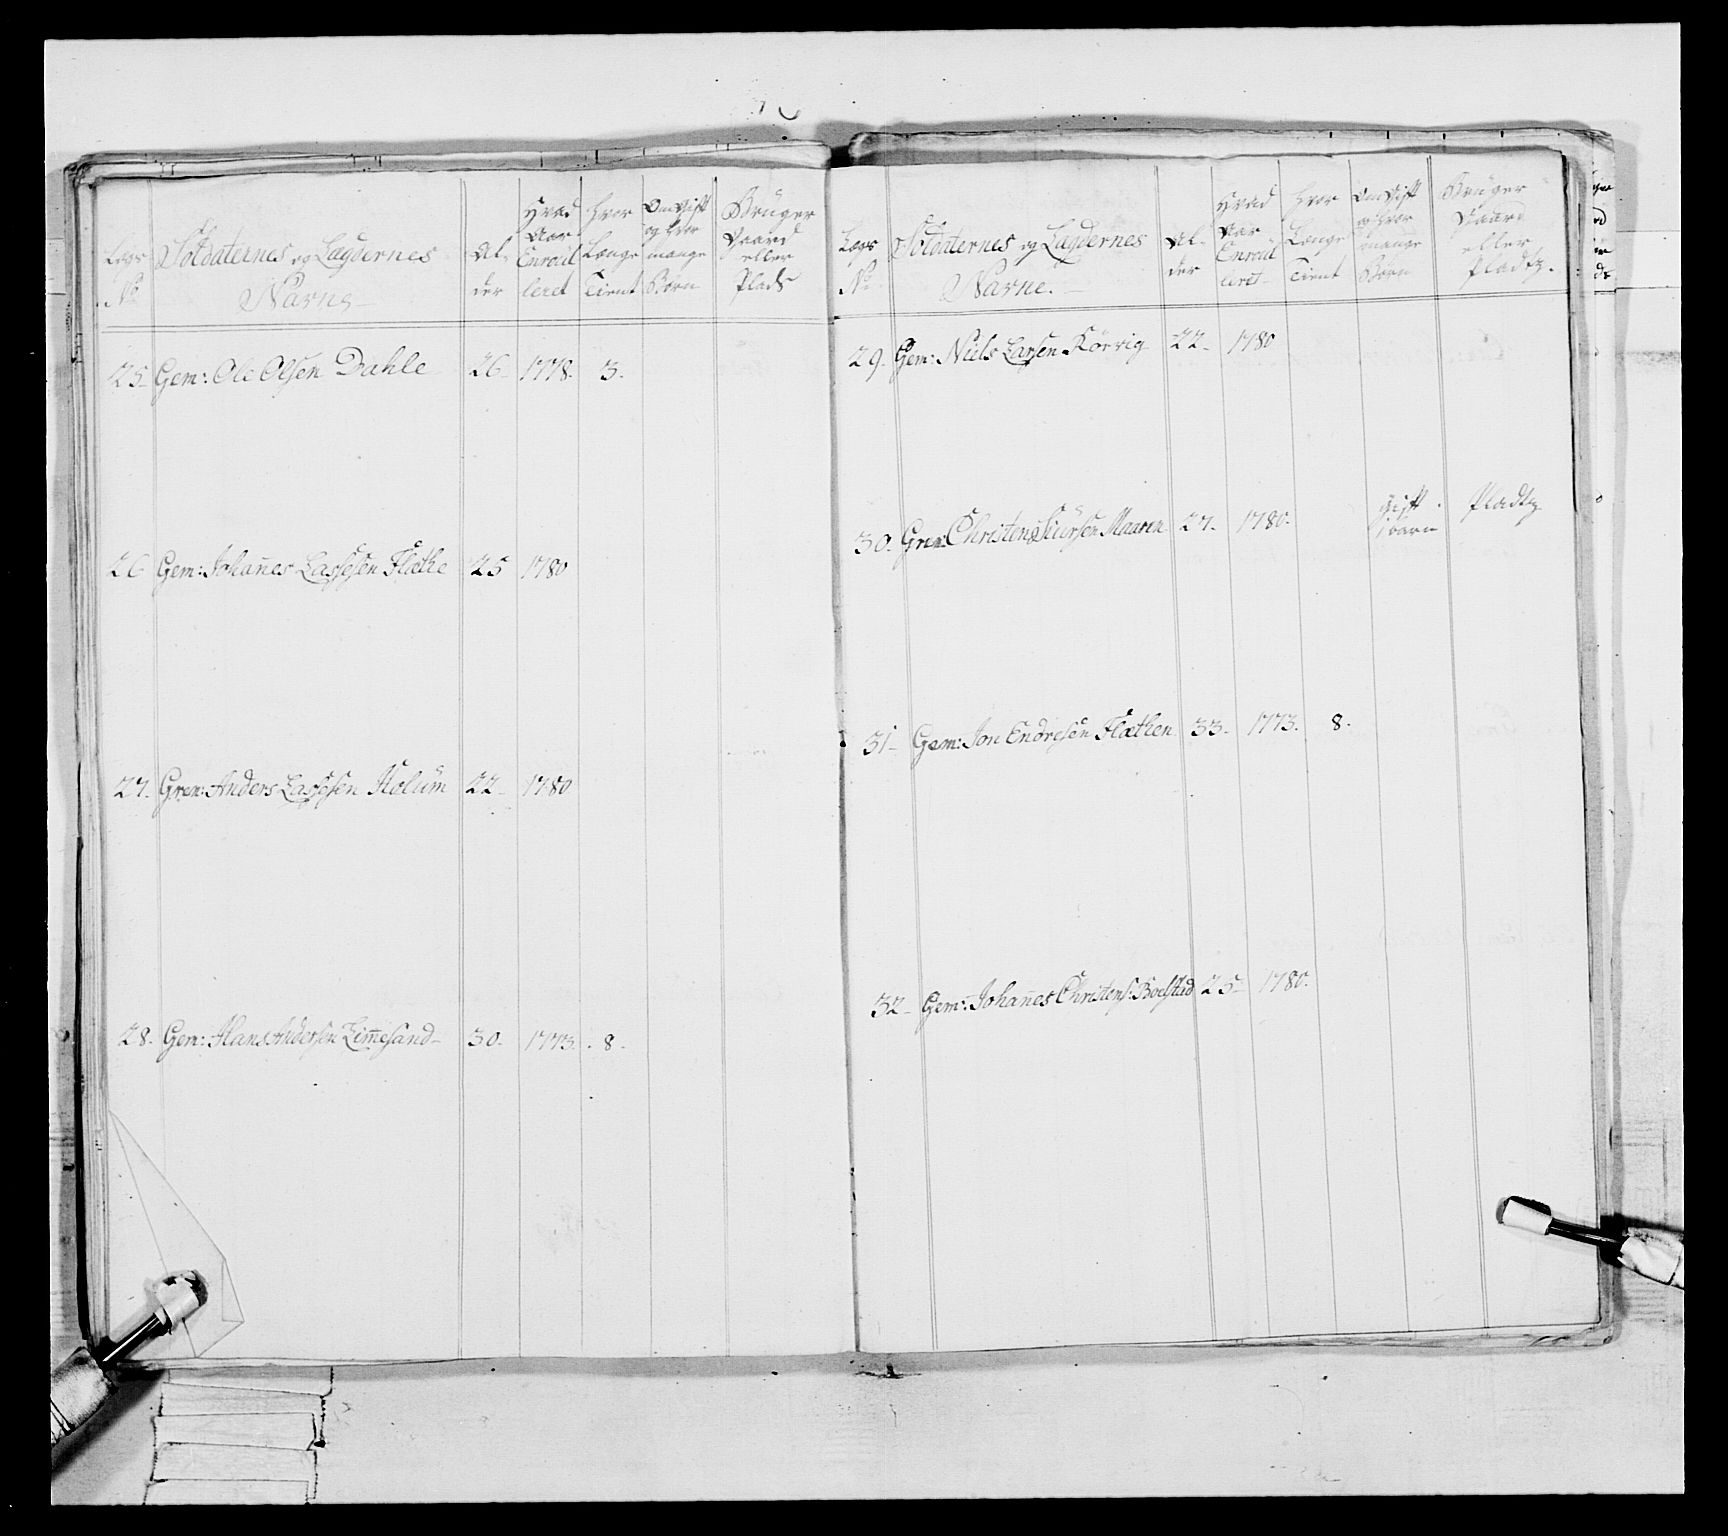 Legs No
Soldaternes og Lægdernes Navne
Al-der
Hvad Aar Enroulleret
hvor Længe Tient
Om Gift og hvor mange Børn
Bruger Gaard eller Plads
25. Gem: Ole Olsen Dahle 26. 1778. 3.
26 Gem: Johan̄es Lassesen Flæthe 25 1780
27. Gren: Anders Lassesen Holum 22. 1780
28. Gem: Hans Andersen Lim̄esand 30. 1773. 8.
Legs No
Soldaternes og Lægdernes Navne.
Al-der
Hvad Aar Enroulleret
hvor Længe Tient
Om Gift og hvor mange Børn
Bruger Gaard eller Pladtz.
29. Gem: Niels Larsen Körvig 22. 1780
30. Gren: Christen Siursen Maaren 27. 1780. gift Pladtz
1 barn
31. Gem: Jon Endresen Flæthen 33. 1773. 8.
32. Gem: Johan̄es Christens: Boelstad 25. 1780.